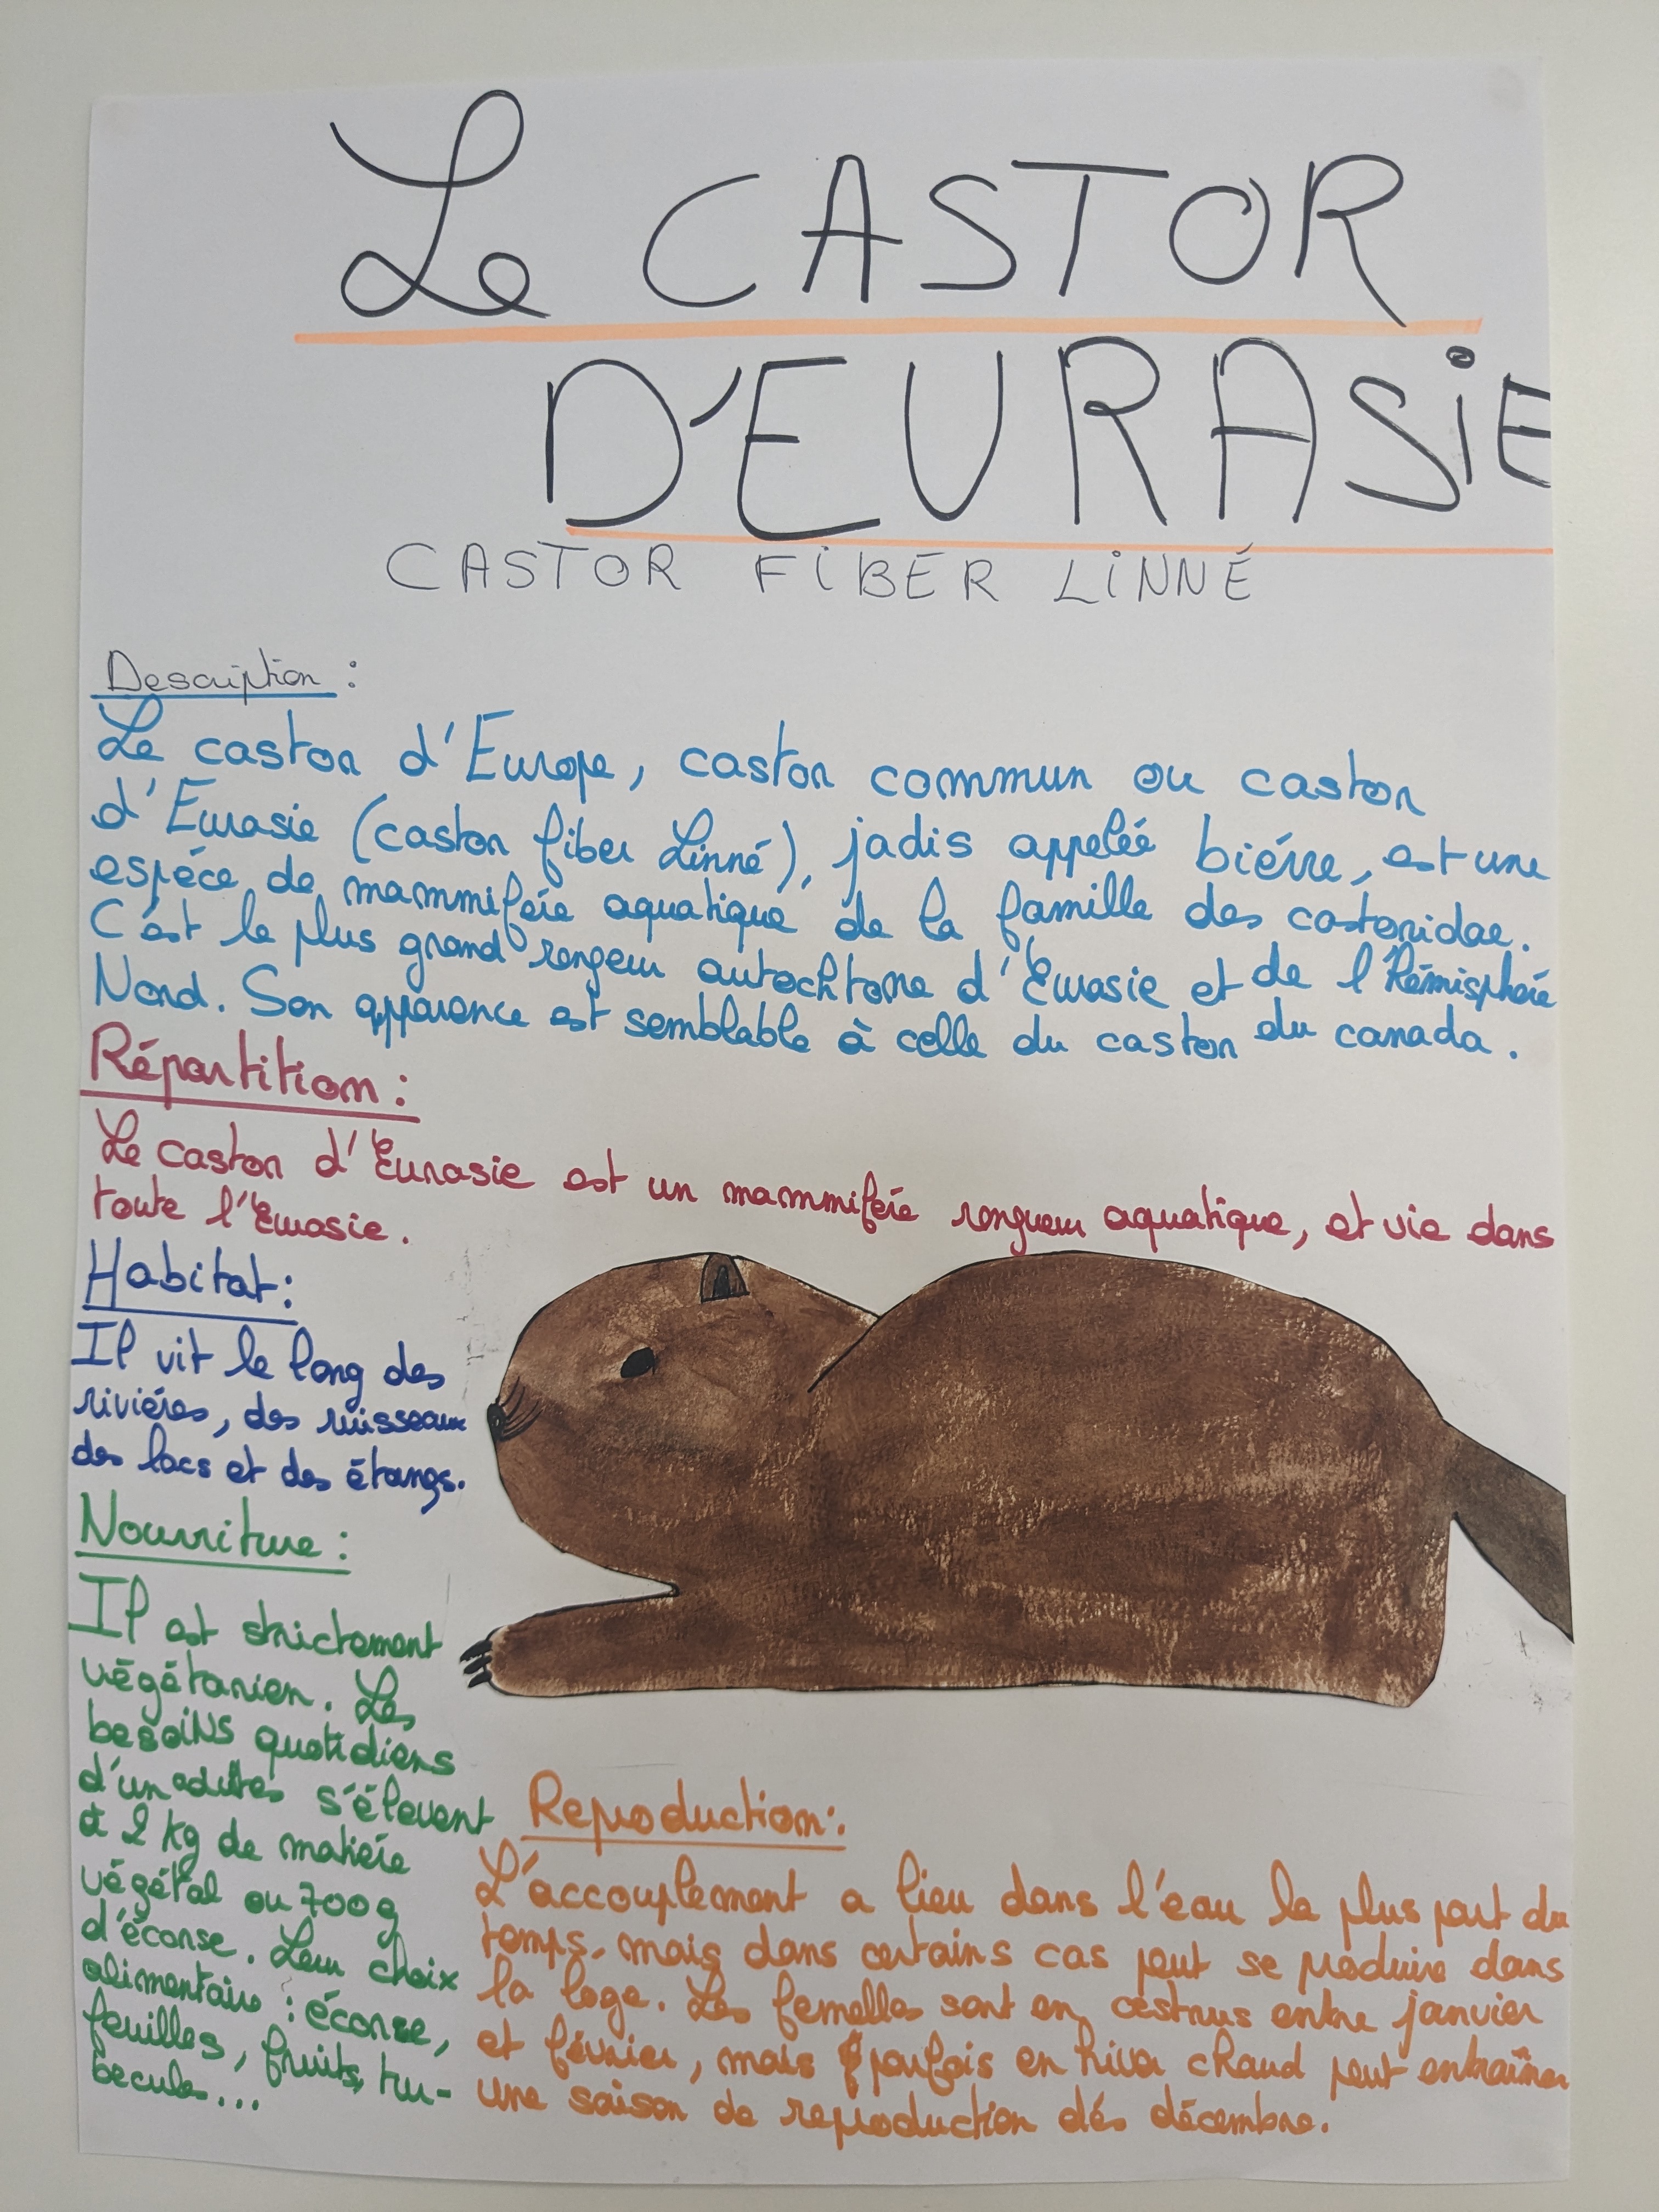 Le CASTOR
D'EURASiE
CASTOR FiBER LiNNÉ
Description :
Le castor d'Europe, castor commun ou castor
d'Eurasie (castor fiber Linné), jadis appelée biévre, est une
espéce de mammiférie aquatique de la famille des castoridae.
C'est le plus grand rongeur autochtone d'Eurasie et de l'Hémisphérie
Nord. Son apparence est semblable à celle du castor du canada.
Répartition :
Le castor d'Eurasie est un mammiférie rongueur aquatique, et vie dans
toute l'Eurasie.
Habitat :
Il vit le long des
riviéres, des ruisseaux
des lacs et des étangs.
Nourriture :
Il est strictement
végétarien. Les
besoiNs quotidiens
d'un adultes s'élevent
à 2 kg de matiérie
végétal ou 700 g
d'éconse. Leur choix
alimentaire : éconse,
feuilles, fruits, tu-
becules...
Reproduction :
L'accouplement a lieu dans l'eau la plus part du
temps, mais dans certains cas peut se produire dans
la loge. Les femelles sont en œstrus entre janvier
et février, mais parfois en hiver chaud peut entraîner
une saison de reproduction dés décembre.